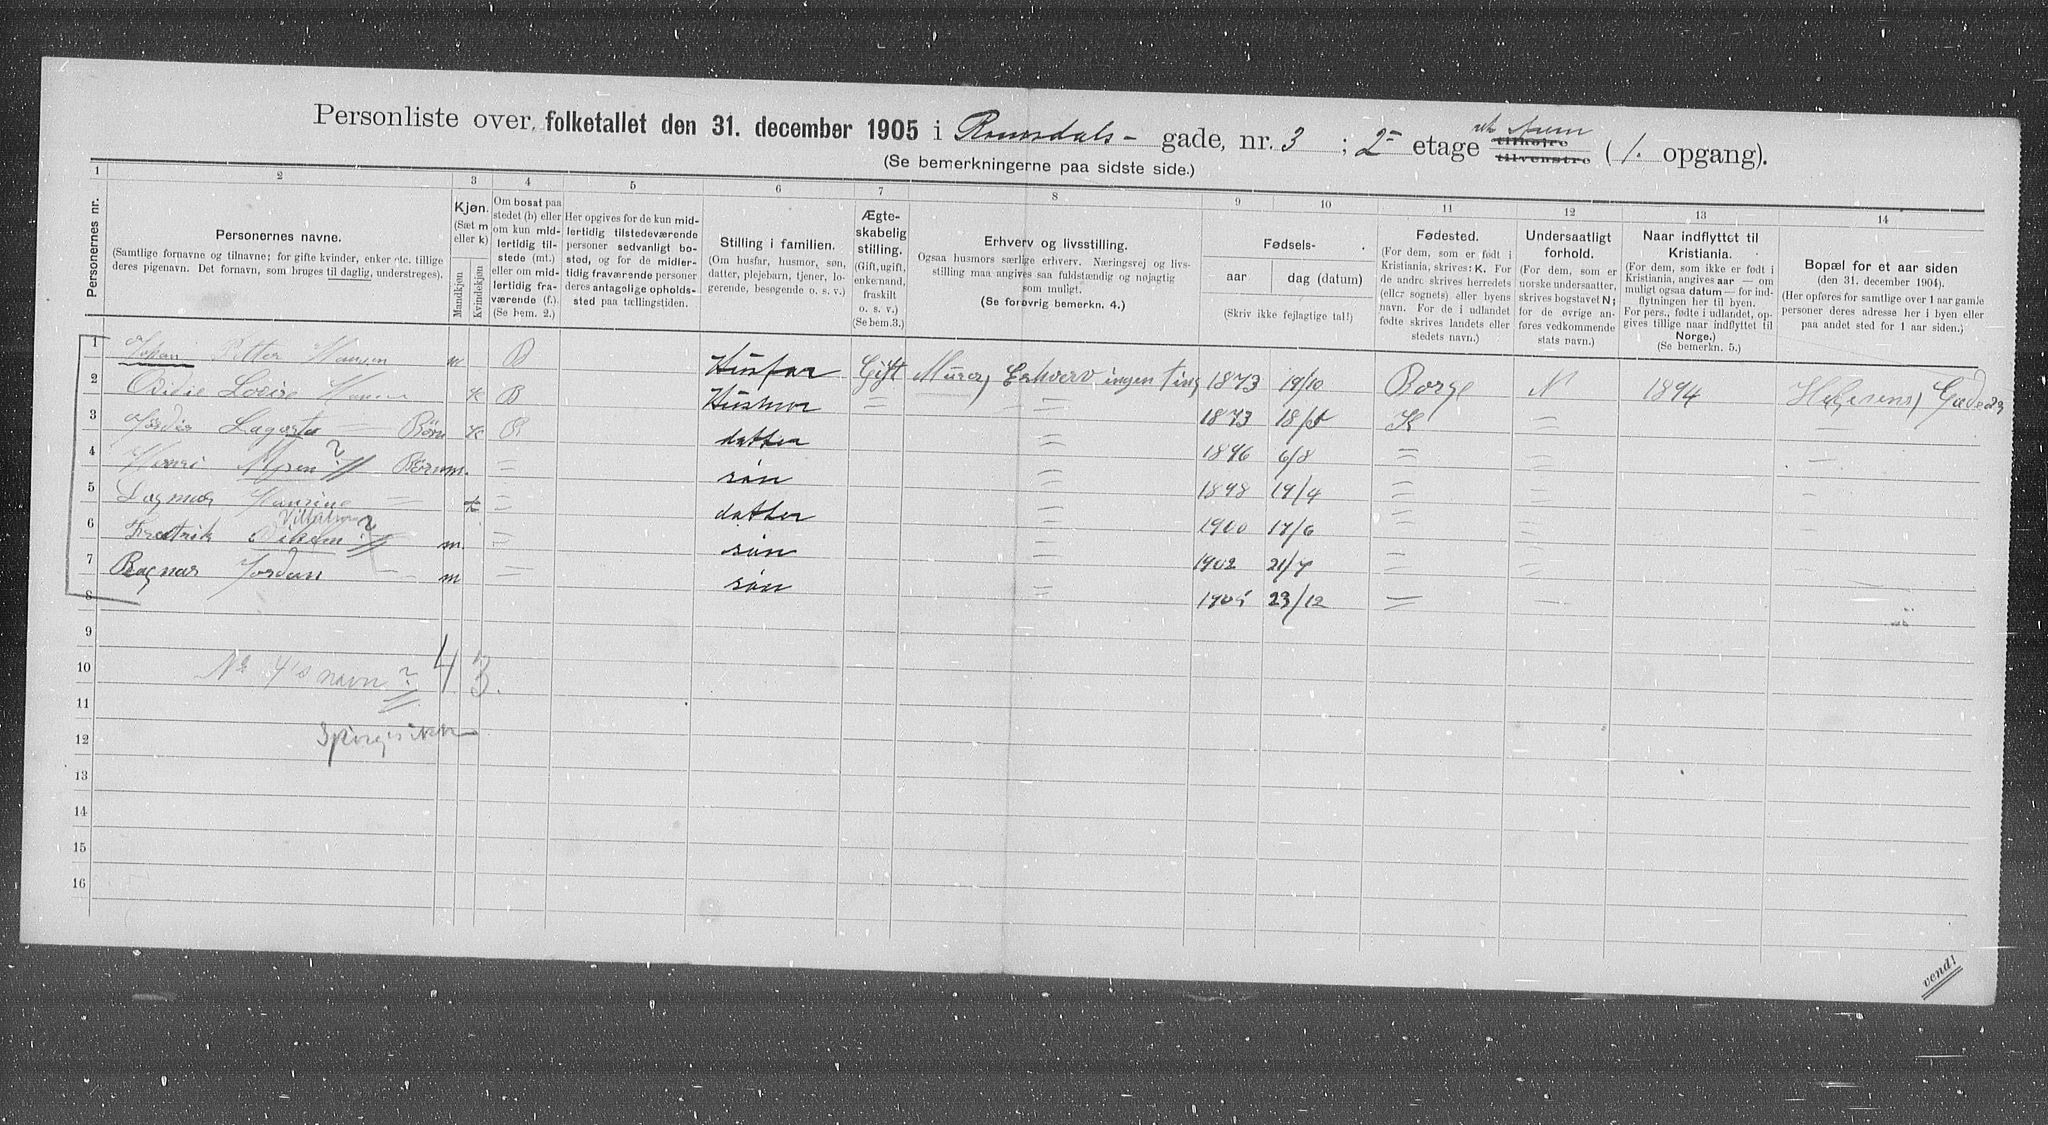 Personliste over folketallet den 31. december 1905 i Romsdals- gade, nr. 3 ; 2- etage tilhøjre tilvenstre ( 1. opgang).
(Se bemerkningerne paa sidste side.)
1 2 3 4 5 6 7 8 9 10 11 12 13 14
Personernes nr.
Personernes navne.
(Samtlige fornavne og tilnavne; for gifte kvinder, enker etc. tillige deres pigenavn. Det fornavn, som bruges til daglig, understreges).
Kjøn.
(Sæt m eller k)
Mandkjøn
Kvindekjøn
Om bosat paa stedet (b) eller om kun midlertidig tilstede (mt.) eller om midlertidig fraværende (f.). (Se bem. 2.)
Her opgives for de kun midlertidig tilstedeværende personer sedvanligt bosted, og for de midlertidig fraværende personer deres antagelige opholdssted paa tællingstiden.
Stilling i familien.
(Om husfar, husmor, søn, datter, plejebarn, tjener, logerende, besøgende o. s. v.)
Ægteskabelig stilling.
(Gift, ugift, enkemand, fraskilt o. s. v.) (Se bem. 3.)
Erhverv og livsstilling.
Ogsaa husmors særlige erhverv. Næringsvej og livsstilling maa angives saa fuldstændig og nøjagtig som muligt.
(Se forøvrig bemerkn. 4.)
Fødsels-
aar
dag (datum)
(Skriv ikke fejlagtige tal!)
Fødested.
(For dem, som er født i Kristiania, skrives: K. For de andre skrives herredets (eller sognets) eller byens navn. For de i udlandet fødte skrives landets eller stedets navn.)
Undersaatligt forhold.
(For dem, som er norske undersaatter, skrives bogstavet N; for de øvrige anføres vedkommende stats navn.)
Naar indflyttet til Kristiania.
(For dem, som ikke er født i Kristiania, angives aar — om muligt ogsaa datum — for indflytningen her til byen. For pers., fødte i udlandet, opgives tillige naar indflyttet til Norge.)
(Se bemerkn. 5.)
Bopæl for et aar siden
(den 31. december 1904).
(Her opføres for samtlige over 1 aar gamle personer deres adresse her i byen eller paa andet sted for 1 aar siden.)
1 Johan Petter Hansen m B Husfar Gift Murer, Erhverv ingen ting 1873 19/10 Borge N 1894 Gade
2 k B Husmor = = 1873 K =
3 k B datter = 1896 6/8 = =
4 = søn = 1898 19/4 = =
5 Dagmar k = datter = 1900 17/6 = =
6 Fredrik Vilhelm ? m. = søn = 1902 21/7 = =
7 Ragnar Jordan m = søn = 1905 23/12 = =
8
9
10 No 4's navn? 4 3.
11
12
13
14
15
16
vend!